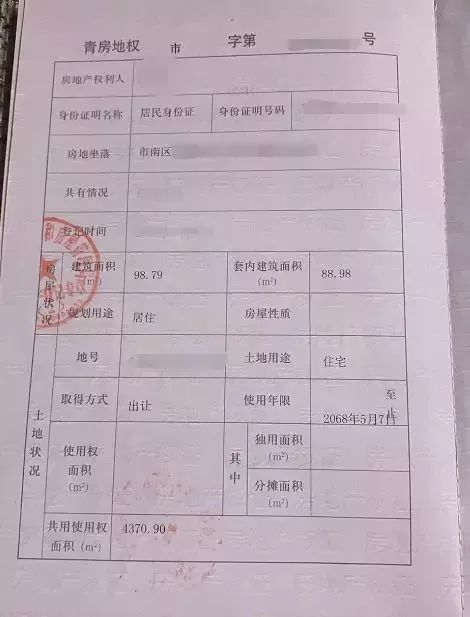 青房地权 市 字第 号
房地产权利人
身份证明名称 居民身份证 身份证明号码
房地坐落 市南区
共有情况
登记时间
房屋状况 建筑面积(m²) 98.79 套内建筑面积(m²) 88.98
规划用途 居住 房屋性质
土地状况 地号 土地用途 住宅
取得方式 出让 使用年限 至2068年5月7日止
使用权面积(m²) 其中 独用面积(m²)
分摊面积(m²)
共用使用权面积(m²) 4370.90